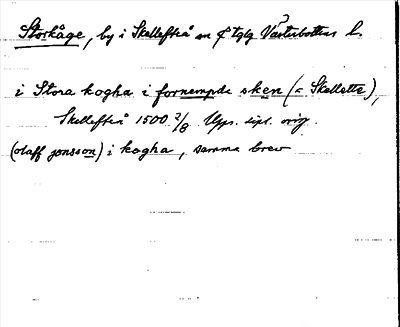 Storkåge, by i Skellefteå sn o tglg Västerbottens l.
i Stora kogha i fornempde sken (= Skellette),
Skellefteå 1500 2/8 Upps. dipl. orig.
(olaff jonsson) i kogha, samma brev